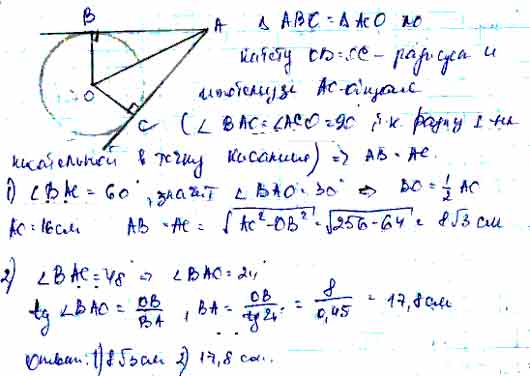 B
A
O
C
Δ ABO = Δ ACO по
катету OB = OC – радиуса и
гипотенузе AO-общая
(∠ BAC = ∠ACO = 90°, т.к. радиус ⊥ на
касательной в точку касания) => AB = AC.
1) ∠BAC = 60°, значит ∠BAO = 30° => BO = 1/2 AO
AO = 16 см AB = AC = √AO² - OB² = √256 - 64 = 8√3 см
2) ∠BAC = 48° => ∠BAO = 24°
tg ∠BAO = OB/BA, BA = OB/tg 24° = 8/0,45 = 17,8 см
Ответ: 1) 8√3 см 2) 17,8 см.